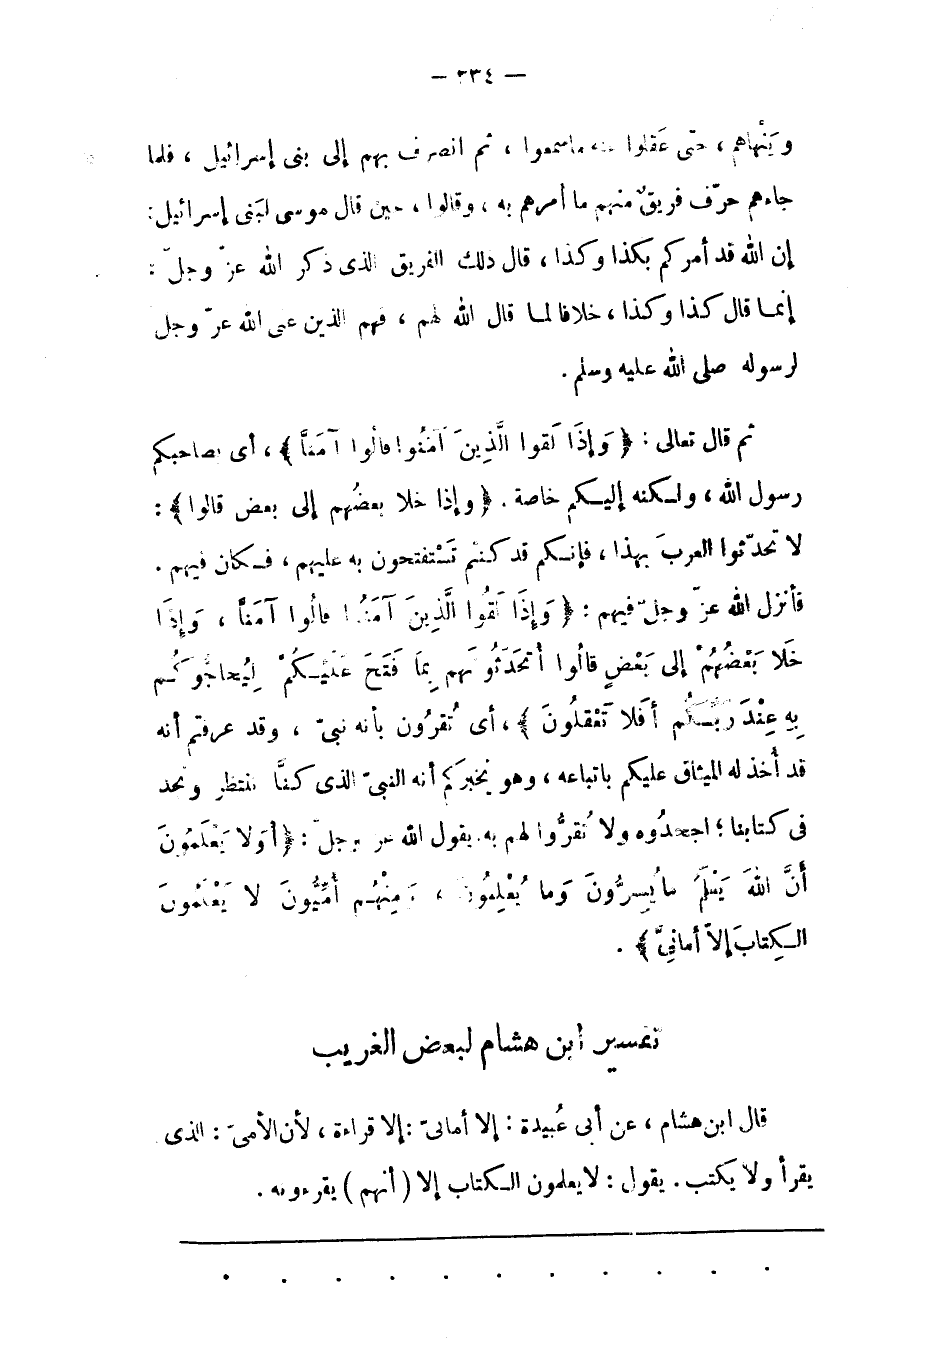 — ٣٣٤ —
ويَنْهاهم ، حتّى عَقلوا منه ماسمعوا ، ثم انصرف بهم إلى بنى إسرائيل ، فلما
جاءهم حرّف فريقٌ منهم ما أمرهم به ، وقالوا ، حين قال موسى لبَنى إسرائيل:
إن الله قد أمركم بكذا وكذا ، قال ذلك الفريق الذى ذكر الله عزّ وجلّ :
إنما قال كذا وكذا ، خلافا لما قال الله لهم ، فهم الذين عنى الله عزّ وجل
لرسوله صلى الله عليه وسلم .
ثم قال تعالى : ﴿ وَإِذَا لَقوا الَّذِينَ آمَنُوا قالُوا آمَنَّا ﴾ ، أى بصاحبكم
رسول الله ، ولكنه إليكم خاصة . ﴿ وإذا خلا بعضُهم إلى بعض قالوا ﴾ :
لا تحدّثوا العربَ بهذا ، فإنكم قد كنتم تَسْتفتحون به عليهم ، فكان فيهم .
فأنزل الله عزّ وجلّ فيهم : ﴿ وَإِذَا لَقُوا الَّذِينَ آمَنُوا قالُوا آمَنَّا ، وَإِذَا
خَلا بَعْضُهُمْ إلى بَعْضٍ قالُوا أتُحَدّثُونَهم بِمَا فَتَحَ عَلَيْكُمْ لِيُحاجُّوكُم
بِهِ عِنْدَ رَبِّكُم أفَلا تَعْقلُونَ ﴾ ، أى تُقرُون بأنه نبىّ ، وقد عرفتم أنه
قد أُخذ له الميثاق عليكم باتباعه ، وهو يخبركم أنه النبىّ الذى كنَّا ننتظر ونجد
فى كتابنا ؛ اجحدُوه ولا تُقرُّوا لهم به. يقول الله عز وجلّ : ﴿ أوَلا يَعْلَمُونَ
أنَّ اللهَ يَعْلَمُ ما يُسِرُّونَ وَما يُعْلِنُونَ ، وَمِنْهُم أُمِّيُّونَ لا يَعْلَمُونَ
الكِتابَ إلاَّ أمانِىَّ ﴾ .
تفسير ابن هشام لبعض الغريب
قال ابن هشام ، عن أبى عُبيدة : إلا أمانىّ : إلا قراءة ، لأن الأمىّ : الذى
يقرأ ولا يكتب . يقول : لا يعلمون الكتاب إلا ( أنهم ) يقرءونه .
. . . . . . . . . . .